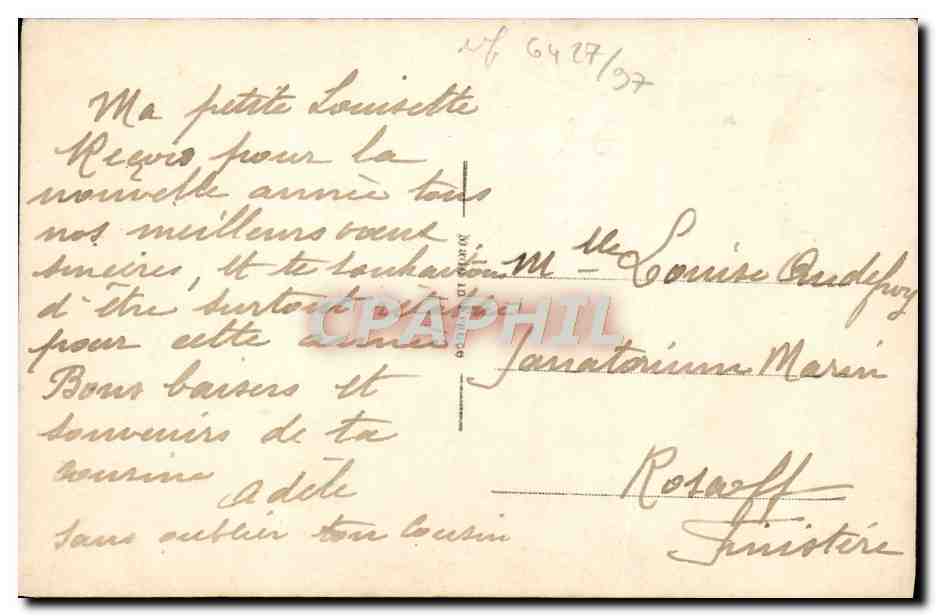 Nf 6427/97
Ma petite Louisette
Reçois pour la
nouvelle année tous
nos meilleurs vœux
sincères, et te souhaitons
d'être surtout rétablie
pour cette année
Bons baisers et
souvenirs de ta
cousine
Adèle
sans oublier ton cousin
Mlle Louise Audefroy
Sanatorium Marin
Roscoff
Finistère
CPAPHIL